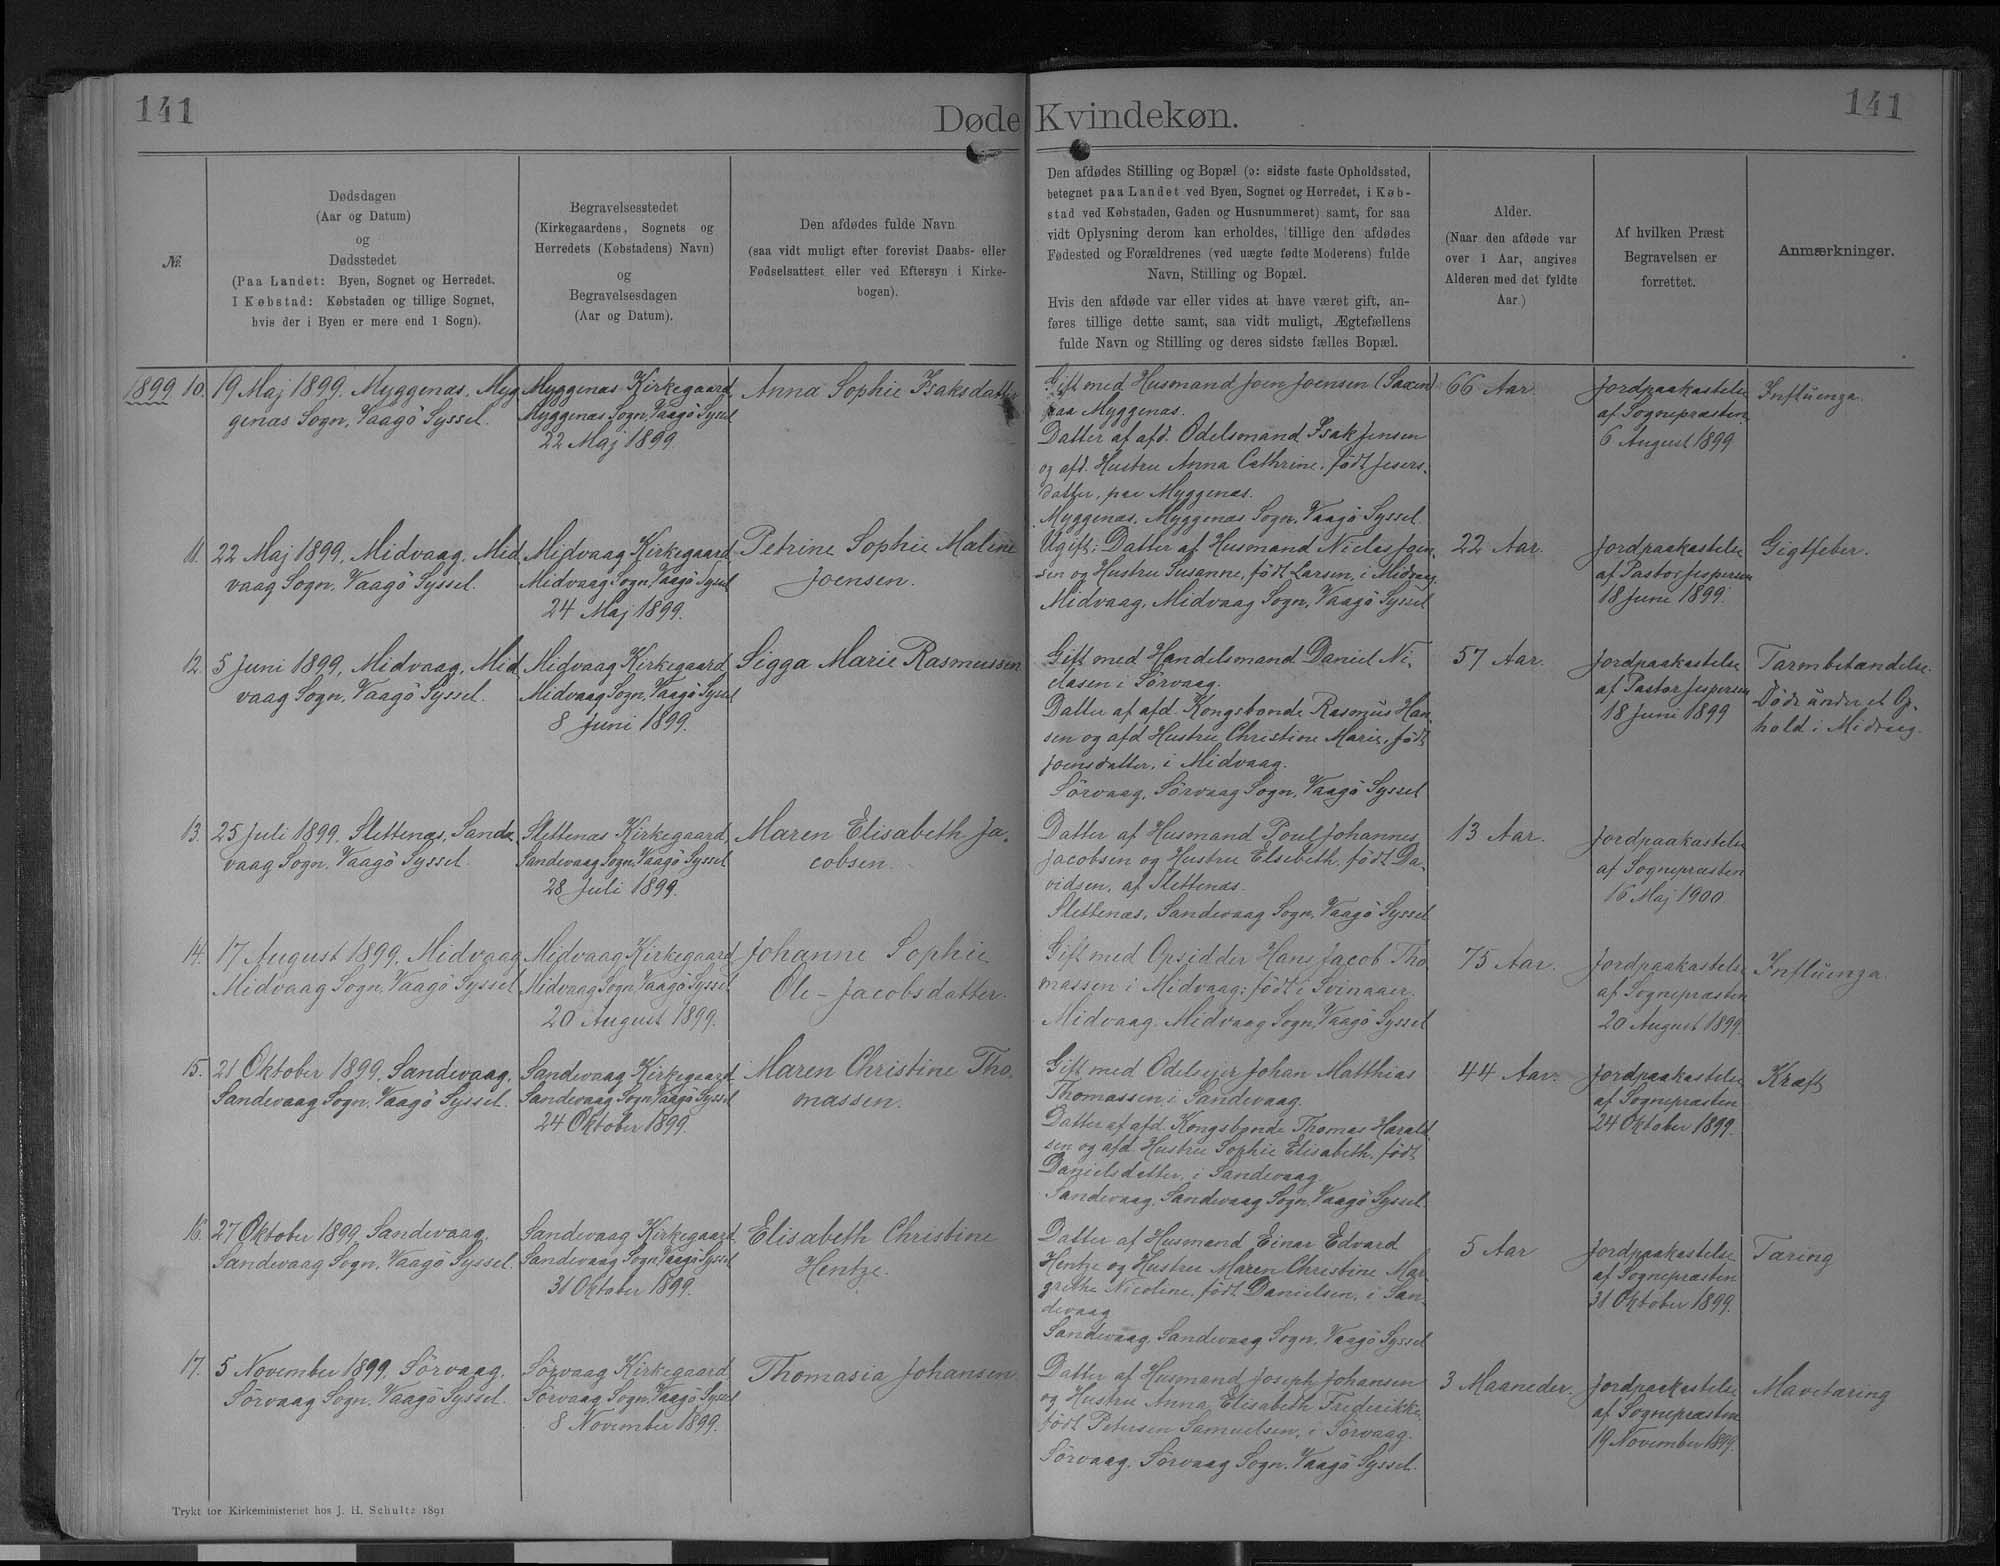 141
Døde Kvindekøn.
141
Nr.
Dødsdagen
(Aar og Datum)
og
Dødsstedet
(Paa Landet: Byen, Sognet og Herredet.
I Købstad: Købstaden og tillige Sognet,
hvis der i Byen er mere end 1 Sogn).
Begravelsesstedet
(Kirkegaardens, Sognets og
Herredets (Købstadens) Navn)
og
Begravelsesdagen
(Aar og Datum).
Den afdødes fulde Navn
(saa vidt muligt efter forevist Daabs- eller
Fødselsattest eller ved Eftersyn i Kirke-
bogen).
Den afdødes Stilling og Bopæl (ɔ: sidste faste Opholdssted,
betegnet paa Landet ved Byen, Sognet og Herredet, i Køb-
stad ved Købstaden, Gaden og Husnummeret) samt, for saa
vidt Oplysning derom kan erholdes, tillige den afdødes
Fødested og Forældrenes (ved uægte fødte Moderens) fulde
Navn, Stilling og Bopæl.
Hvis den afdøde var eller vides at have været gift, an-
føres tillige dette samt, saa vidt muligt, Ægtefællens
fulde Navn og Stilling og deres sidste fælles Bopæl.
Alder.
(Naar den afdøde var
over 1 Aar, angives
Alderen med det fyldte
Aar.)
Af hvilken Præst
Begravelsen er
forrettet.
Anmærkninger.
1899. 10.
19 Maj 1899. Myggenæs, Myg
genæs Sogn, Vaagö Syssel.
Myggenæs Kirkegaard,
Myggenæs Sogn, Vaagö Syssel
22 Maj 1899.
Anna Sophie Isaksdatter
Gift med Husmand Joen Joensen (Saxen)
paa Myggenæs.
Datter af afd. Odelsmand Isak Jensen
og afd. Hustru Anna Cathrine, født
datter, paa Myggenæs.
Myggenæs, Myggenæs Sogn, Vaagö Syssel
66 Aar.
Jordpaakastelse
af Sognepræsten
6 August 1899
Influenza.
11.
22 Maj 1899, Midvaag, Mid
vaag Sogn, Vaagö Syssel.
Midvaag Kirkegaard
Midvaag Sogn, Vaagö Syssel
24 Maj 1899.
Petrine Sophie Maline
Joensen.
Ugift; Datter af Husmand Niclas Joen
sen og Hustru Susanne, født Larsen, i Midvaag
Midvaag, Midvaag Sogn, Vaagö Syssel
22 Aar.
Jordpaakastelse
af Pastor Jespersen
18 Juni 1899.
Gigtfeber.
12.
5 Juni 1899, Midvaag, Mid
vaag Sogn, Vaagö Syssel.
Midvaag Kirkegaard
Midvaag Sogn, Vaagö Syssel
8 Juni 1899.
Sigga Marie Rasmussen
Gift med Handelsmand Daniel Ni,
clasen i Sörvaag.
Datter af afd. Kongsbonde Rasmus Han,
sen og afd. Hustru Christine Marie, født
Joensdatter, i Midvaag.
Sörvaag, Sörvaag Sogn, Vaagö Syssel
57 Aar.
Jordpaakastelse
af Pastor Jespersen
18 Juni 1899
Tarmbetændelse.
Døde under et Op,
hold i Midvaag.
13.
25 Juli 1899. Slettenæs, Sande,
vaag Sogn, Vaagö Syssel
Slettenæs Kirkegaard,
Sandevaag Sogn, Vaagö Syssel
28 Juli 1899.
Maren Elisabeth Ja,
cobsen.
Datter af Husmand Poul Johannes
Jacobsen og Hustru Elsebeth, født Da,
vidsen, af Slettenæs.
Slettenæs, Sandevaag Sogn, Vaagö Syssel
13 Aar.
Jordpaakastelse
af Sognepræsten
16 Maj 1900.
14.
17 August 1899, Midvaag
Midvaag Sogn, Vaagö Syssel
Midvaag Kirkegaard
Midvaag Sogn, Vaagö Syssel
20 August 1899.
Johanne Sophie
Ole-Jacobsdatter.
Gift med Opsidder Hans Jacob Tho
massen i Midvaag; født i Svinaaer.
Midvaag, Midvaag Sogn, Vaagö Syssel
75 Aar.
Jordpaakastelse
af Sognepræsten
20 August 1899.
Influenza.
15.
21 Oktober 1899. Sandevaag,
Sandevaag Sogn, Vaagö Syssel.
Sandevaag Kirkegaard
Sandevaag Sogn, Vaagö Syssel
24 Oktober 1899.
Maren Christine Tho,
massen.
Gift med Odelsejer Johan Matthias
Thomassen, i Sandevaag.
Datter af afd. Kongsbonde Thomas Harald,
sen og afd. Hustru Sophie Elisabeth, født
Danielsdatter, i Sandevaag
Sandevaag, Sandevaag Sogn, Vaagö Syssel.
44 Aar.
Jordpaakastelse
af Sognepræsten
24 Oktober 1899.
Kræft
16.
27 Oktober 1899, Sandevaag,
Sandevaag Sogn, Vaagö Syssel.
Sandevaag Kirkegaard,
Sandevaag Sogn, Vaagö Syssel
31 Oktober 1899.
Elisabeth Christine
Hentze.
Datter af Husmand Einar Edvard
Hentze og Hustru Maren Christine Mar,
grethe Nicoline, født Danielsen, i San,
devaag
Sandevaag, Sandevaag Sogn, Vaagö Syssel
5 Aar
Jordpaakastelse
af Sognepræsten
31 Oktober 1899.
Tæring
17.
5 November 1899. Sörvaag,
Sörvaag Sogn, Vaagö Syssel.
Sörvaag Kirkegaard
Sörvaag Sogn, Vaagö Syssel
8 November 1899.
Thomasia Johansen
Datter af Husmand Joseph Johansen
og Hustru Anna Elisabeth Frederikke,
født Petersen Samuelsen, i Sörvaag.
Sörvaag, Sörvaag Sogn, Vaagö Syssel.
3 Maaneder.
Jordpaakastelse
af Sognepræsten
19 November 1899.
Mavetæring
Trykt for Kirkeministeriet hos J. H. Schultz 1891